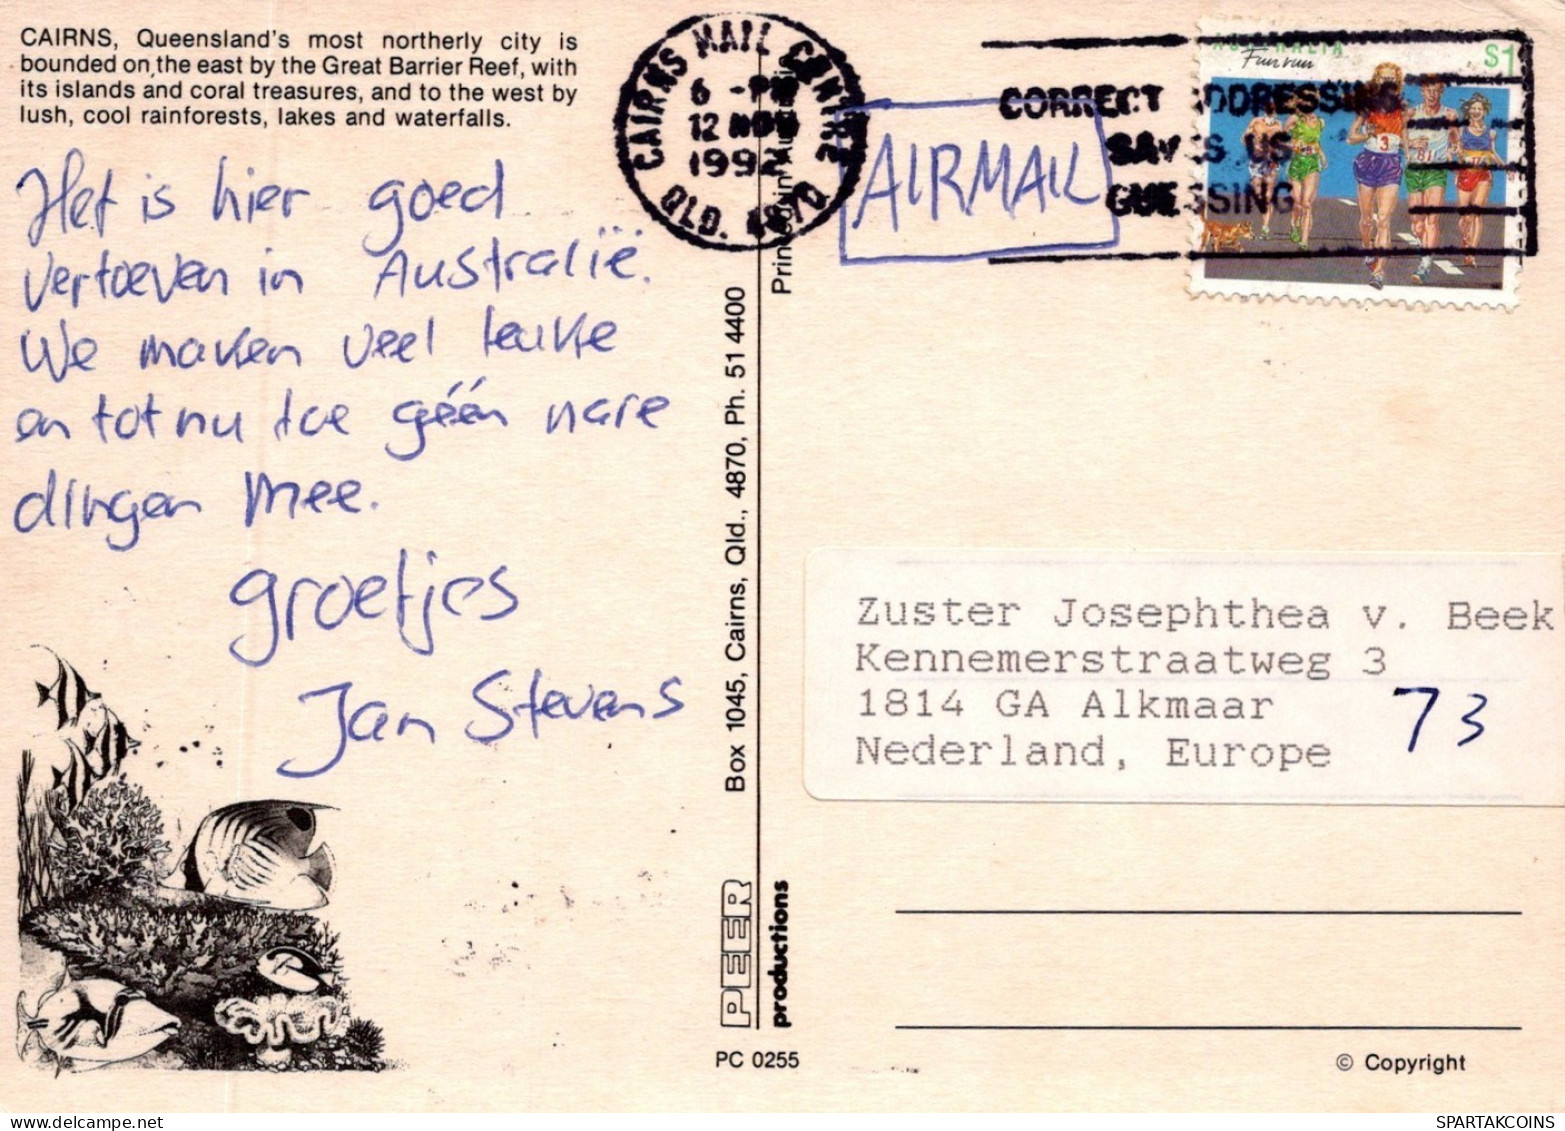 CAIRNS, Queensland's most northerly city is
bounded on the east by the Great Barrier Reef, with
its islands and coral treasures, and to the west by
lush, cool rainforests, lakes and waterfalls.
Het is hier goed
vertoeven in Australië.
We maken veel leuke
en tot nu toe géén nare
dingen mee.
groetjes
Jan Stevens
CAIRNS MAIL CENTRE
6 - PM
12 NOV
1992
QLD. 4870
AIRMAIL
CORRECT ADDRESSING
SAVES US
GUESSING
AUSTRALIA
Fun run
$1
3
81
Box 1045, Cairns, Qld., 4870, Ph. 51 4400
Printed in Australia
PEER
productions
PC 0255
Zuster Josephthea v. Beek
Kennemerstraatweg 3
1814 GA Alkmaar
Nederland, Europe
73
© Copyright
SPARTAKCOINS